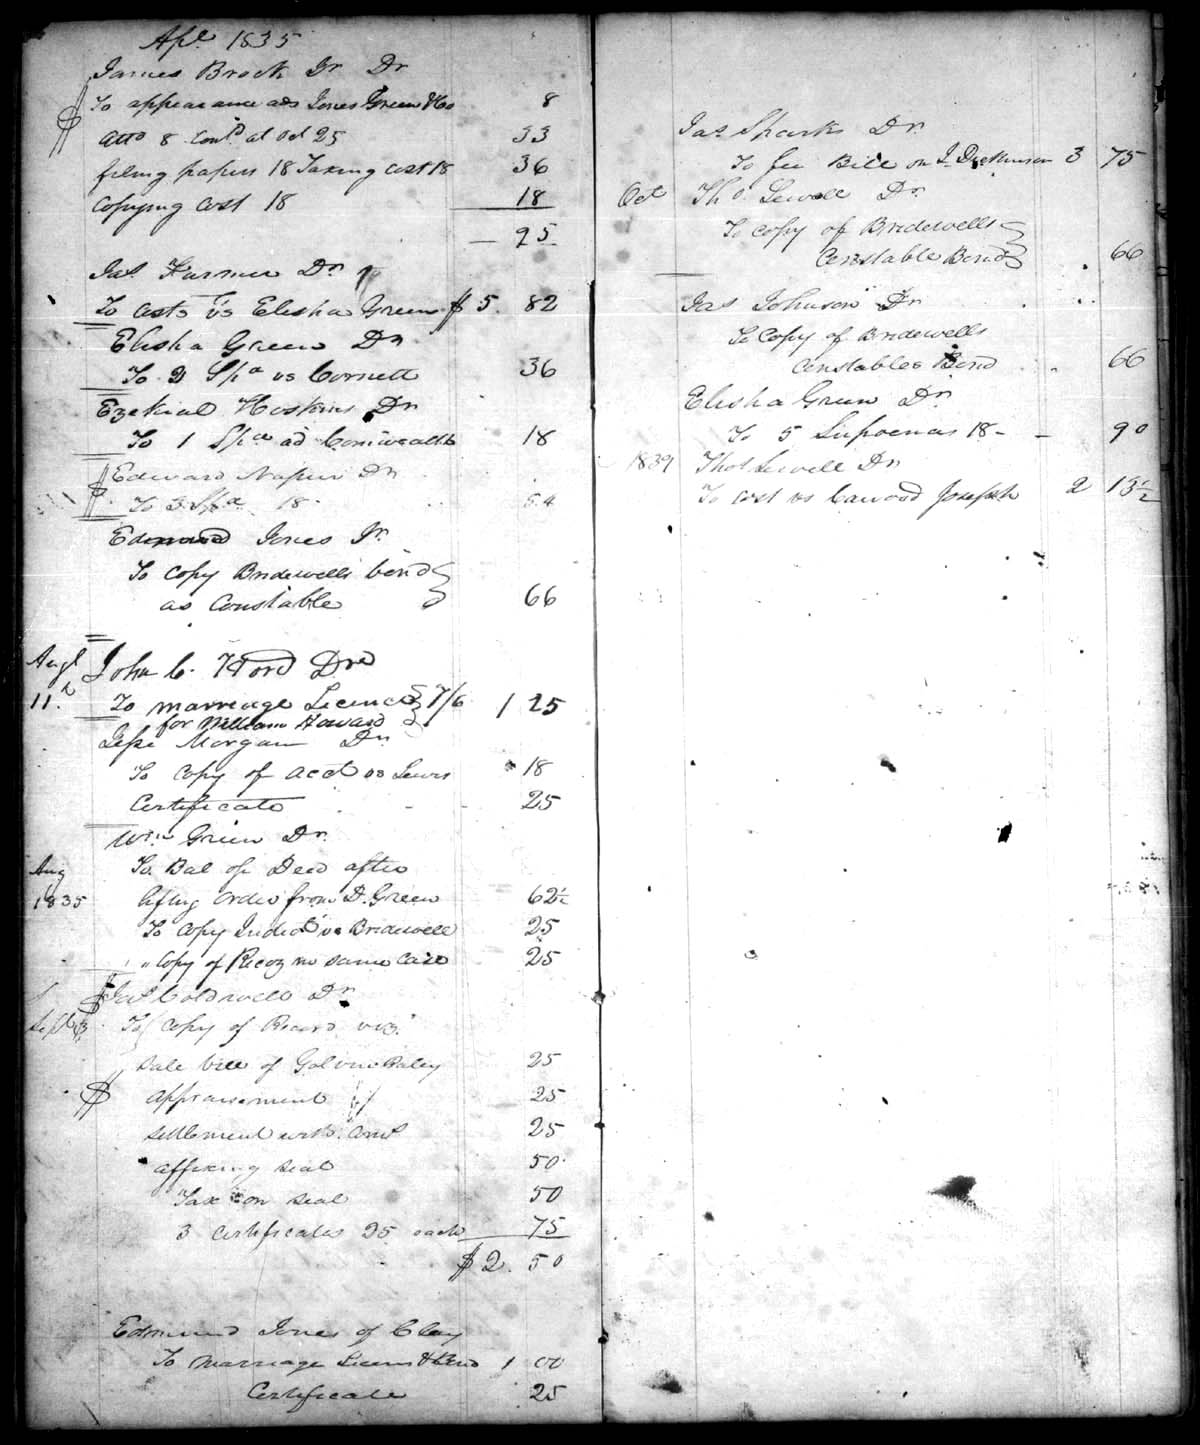 Apl 1835
James Brock Jr Dr
To appearance ads Jones Green & Co 8
Atto 8 Cont at Oct 25 33
filing papers 18 Taxing cost 18 36
Copying Cost 18 18
95
Jas Farmer Dr
To costs vs Elisha Green $5. 82
Elisha Green Dr
To 2 Spa vs Cornett 36
Ezekial Hoskins Dr
To 1 Spa ad Comwealth 18
Edward Napier Dr
To 3 Spa 18 54
Edmund Jones Jr
To Copy Bridewells bond
as Constable 66
Augt John C. Ford Dr
11th To marreage Licence 7/6 1 25
for William Howard
Jesse Morgan Dr
To Copy of acct vs Lewis 18
Certificate 25
Wm Green Dr
Aug To Bal of Deed after
1835 lifting order from D. Green 62½
To Copy Indict vs Bridewell 25
" Copy of Recoz in same Case 25
Jas Coldwell Dr
Sept To Copy of Record viz
sale bill of Galvin Baley 25
appraisement 25
settlement with Comr 25
affixing seal 50
Tax on seal 50
3 Certificates 25 each 75
$2. 50
Edmund Jones of Clay
To marriage Licens & Bond 1 00
Certificate 25
Jas Sparks Dr
To fee Bill on J. Dickinson 3 75
Oct Tho. Sewell Dr
To copy of Bridewells
Constable Bond 66
Jas Johnson Dr
To Copy of Bridewells
Constables Bond 66
Elisha Green Dr
To 5 Supoenas 18 - 90
1839 Thos Sewell Dr
To cost vs Cawood Joseph 2 13½